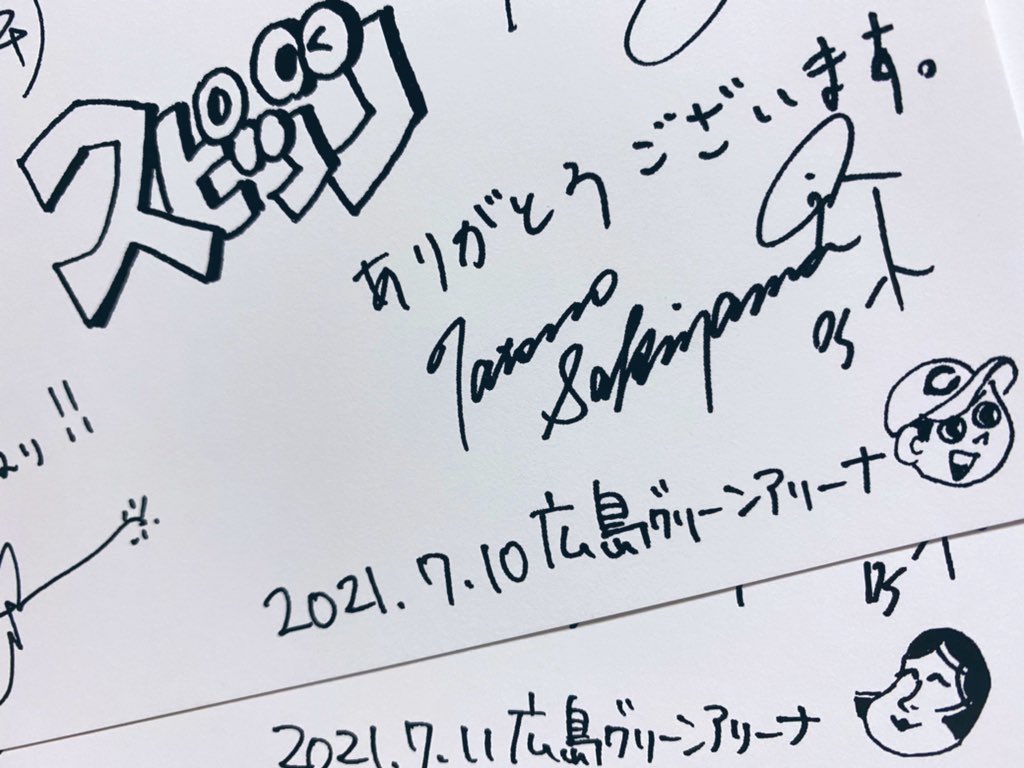 スピッツ
ありがとうございます。
Tatsuo
Sakiyama
DS
より!!
2021.7.10 広島グリーンアリーナ
DS
2021.7.11 広島グリーンアリーナ